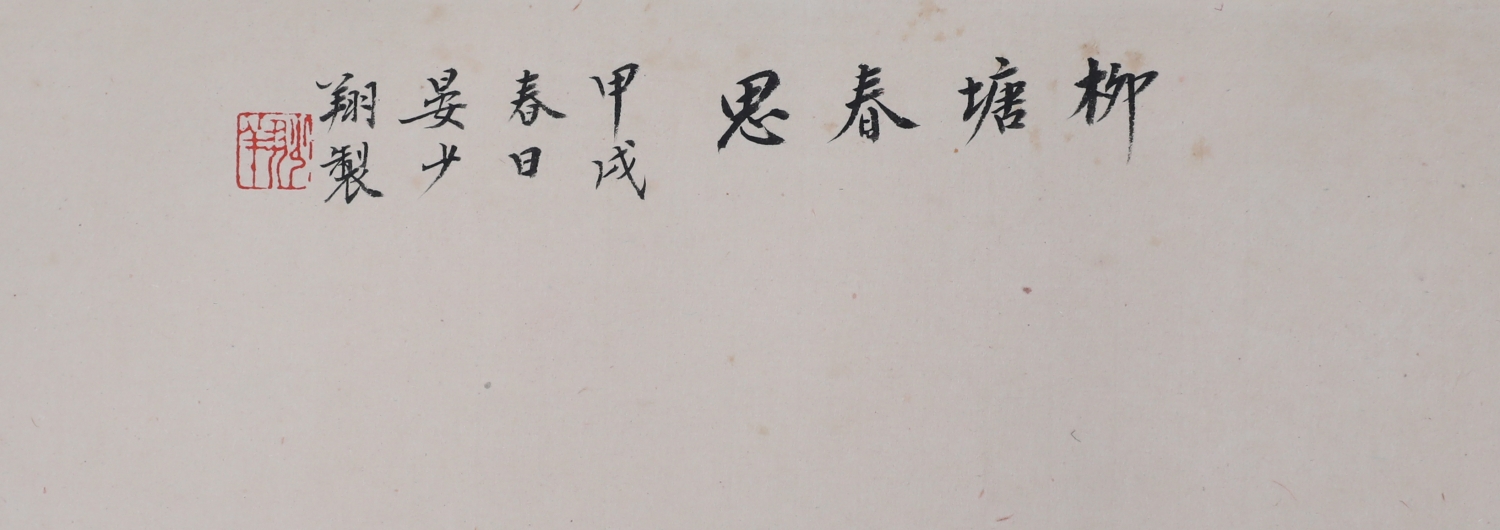 柳塘春思
甲戌
春日
晏少
翔製
少翔